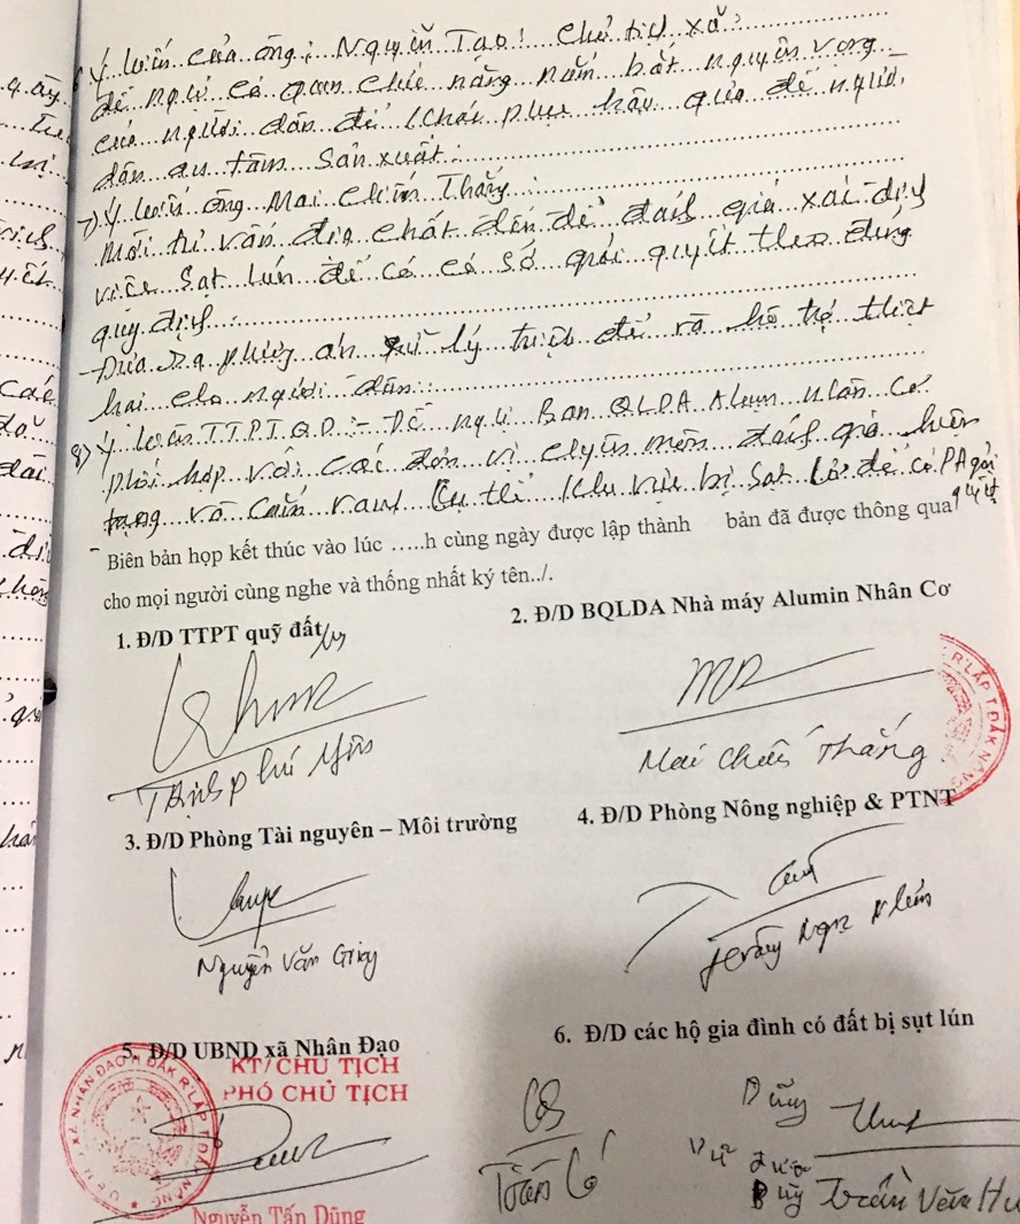 Ý kiến của ông: Nguyễn Tạo: Chủ tịch xã:
đề nghị cơ quan chức năng nắm bắt nguyện vọng
của người dân để khắc phục hậu quả để người
dân an tâm sản xuất.
7) Ý kiến ông Mai Chiến Thắng:
Mời tư vấn địa chất đến để đánh giá xác định
việc sạt lún để có cơ sở giải quyết theo đúng
quy định.
- Đưa ra phương án xử lý triệt để và hỗ trợ thiệt
hại cho người dân.
8) Ý kiến TTPTQĐ: - Đề nghị Ban QLDA Alumin Nhân Cơ
phối hợp với các đơn vị chuyên môn đánh giá hiện
trạng và cắm ranh cụ thể khu vực bị sạt lở để có PA giải
quyết
Biên bản họp kết thúc vào lúc .....h cùng ngày được lập thành bản đã được thông qua
cho mọi người cùng nghe và thống nhất ký tên../.
1. Đ/D TTPT quỹ đất
2. Đ/D BQLDA Nhà máy Alumin Nhân Cơ
Mai Chiến Thắng
3. Đ/D Phòng Tài nguyên – Môi trường
4. Đ/D Phòng Nông nghiệp & PTNT
Nguyễn Văn
5. Đ/D UBND xã Nhân Đạo
6. Đ/D các hộ gia đình có đất bị sụt lún
KT/CHỦ TỊCH
PHÓ CHỦ TỊCH
Nguyễn Tấn Dũng
Dũng
Trần Văn